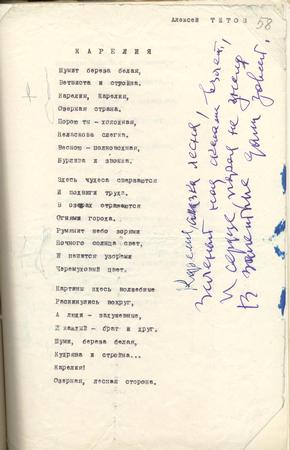 Алексей ТИТОВ
58
КАРЕЛИЯ
Шумит береза белая,
Ветвиста и стройна.
Карелия, Карелия,
Озерная страна.
Порою ты - холодная,
Неласкова слегка.
Весною - полноводная,
Бурлива и звонка.
Здесь чудеса свершаются
И подвиги труда.
В озерах отражаются
Огнями города.
Румянит небо зорями
Ночного солнца свет,
И кипится узорами
Черемуховый цвет.
Картины здесь волшебные
Раскинулись вокруг,
А люди - задушевные,
И каждый - брат и друг.
Шуми, береза белая,
Кудрява и стройна...
Карелия!
Озерная, лесная сторона.
Карелия, сказка лесная,
Зеленый над скалами взлет,
И сердце порой не знает
В дали зовет.